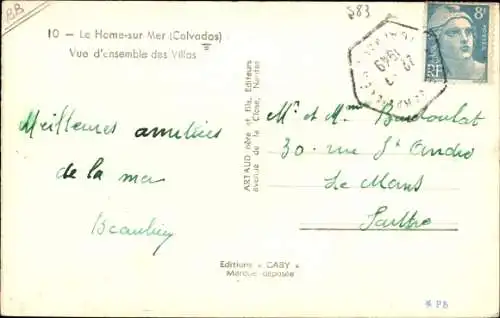 BB
583
10 - Le Home-sur Mer (Calvados)
Vue d'ensemble des Villas
8F
1949
Meilleures amitiées
de la mer
Beaulieu
ARTAUD père et fils, Editeurs
avenue de la Close, Nantes
Mr et Mme
30 rue St André
Le Mans
Sarthe
Editions « GABY »
Marque déposée
* PB